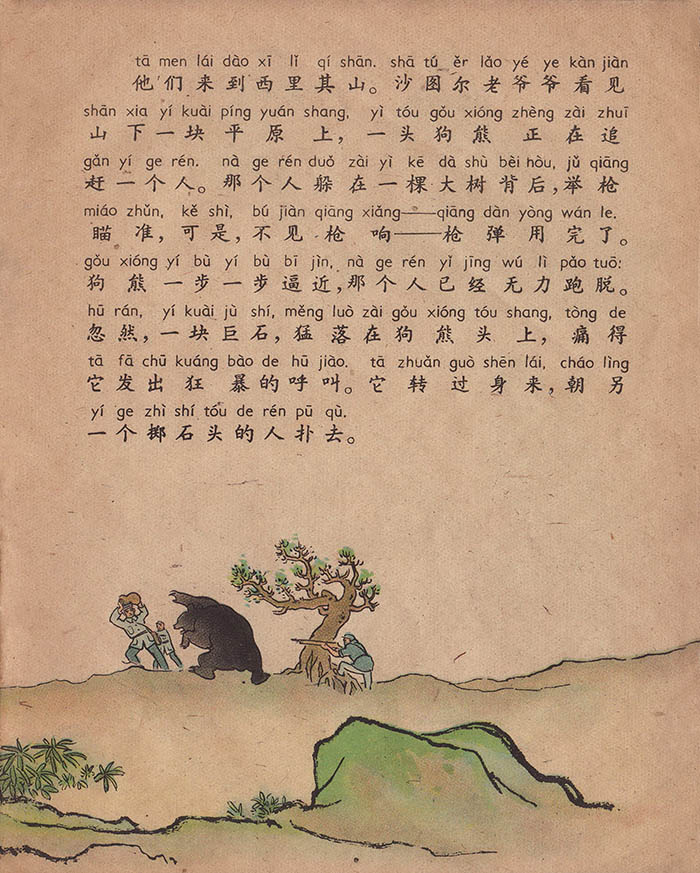 tā men lái dào xī lǐ qí shān. shā tú ěr lǎo yé ye kàn jiàn
他们来到西里其山。沙图尔老爷爷看见
shān xia yí kuài píng yuán shang, yì tóu gǒu xióng zhèng zài zhuī
山下一块平原上，一头狗熊正在追
gǎn yí ge rén. nà ge rén duǒ zài yì kē dà shù bèi hòu, jǔ qiāng
赶一个人。那个人躲在一棵大树背后，举枪
miáo zhǔn, kě shì, bú jiàn qiāng xiǎng——qiāng dàn yòng wán le.
瞄准，可是，不见枪响——枪弹用完了。
gǒu xióng yí bù yí bù bī jìn, nà ge rén yǐ jīng wú lì pǎo tuō:
狗熊一步一步逼近，那个人已经无力跑脱。
hū rán, yí kuài jù shí, měng luò zài gǒu xióng tóu shang, tòng de
忽然，一块巨石，猛落在狗熊头上，痛得
tā fā chū kuáng bào de hū jiào. tā zhuǎn guò shēn lái, cháo lìng
它发出狂暴的呼叫。它转过身来，朝另
yí ge zhì shí tou de rén pū qù.
一个掷石头的人扑去。